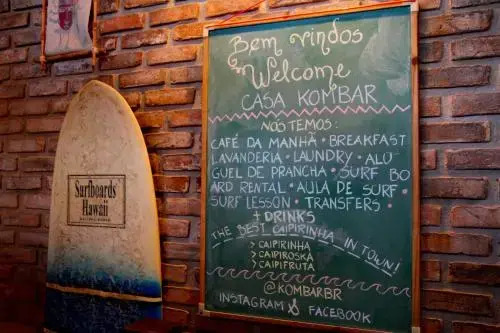 Bem vindos
& Welcome
CASA KOMBAR
NÓS TEMOS:
CAFÉ DA MANHÃ • BREAKFAST
LAVANDERIA • LAUNDRY • ALU
GUEL DE PRANCHA • SURF BO
ARD RENTAL • AULA DE SURF •
SURF LESSON • TRANSFERS •
+ DRINKS
THE BEST CAIPIRINHA IN TOWN!
> CAIPIRINHA
> CAIPIROSKA
> CAIPIFRUTA
@KOMBARBR
INSTAGRAM & FACEBOOK
Surfboards
Hawaii